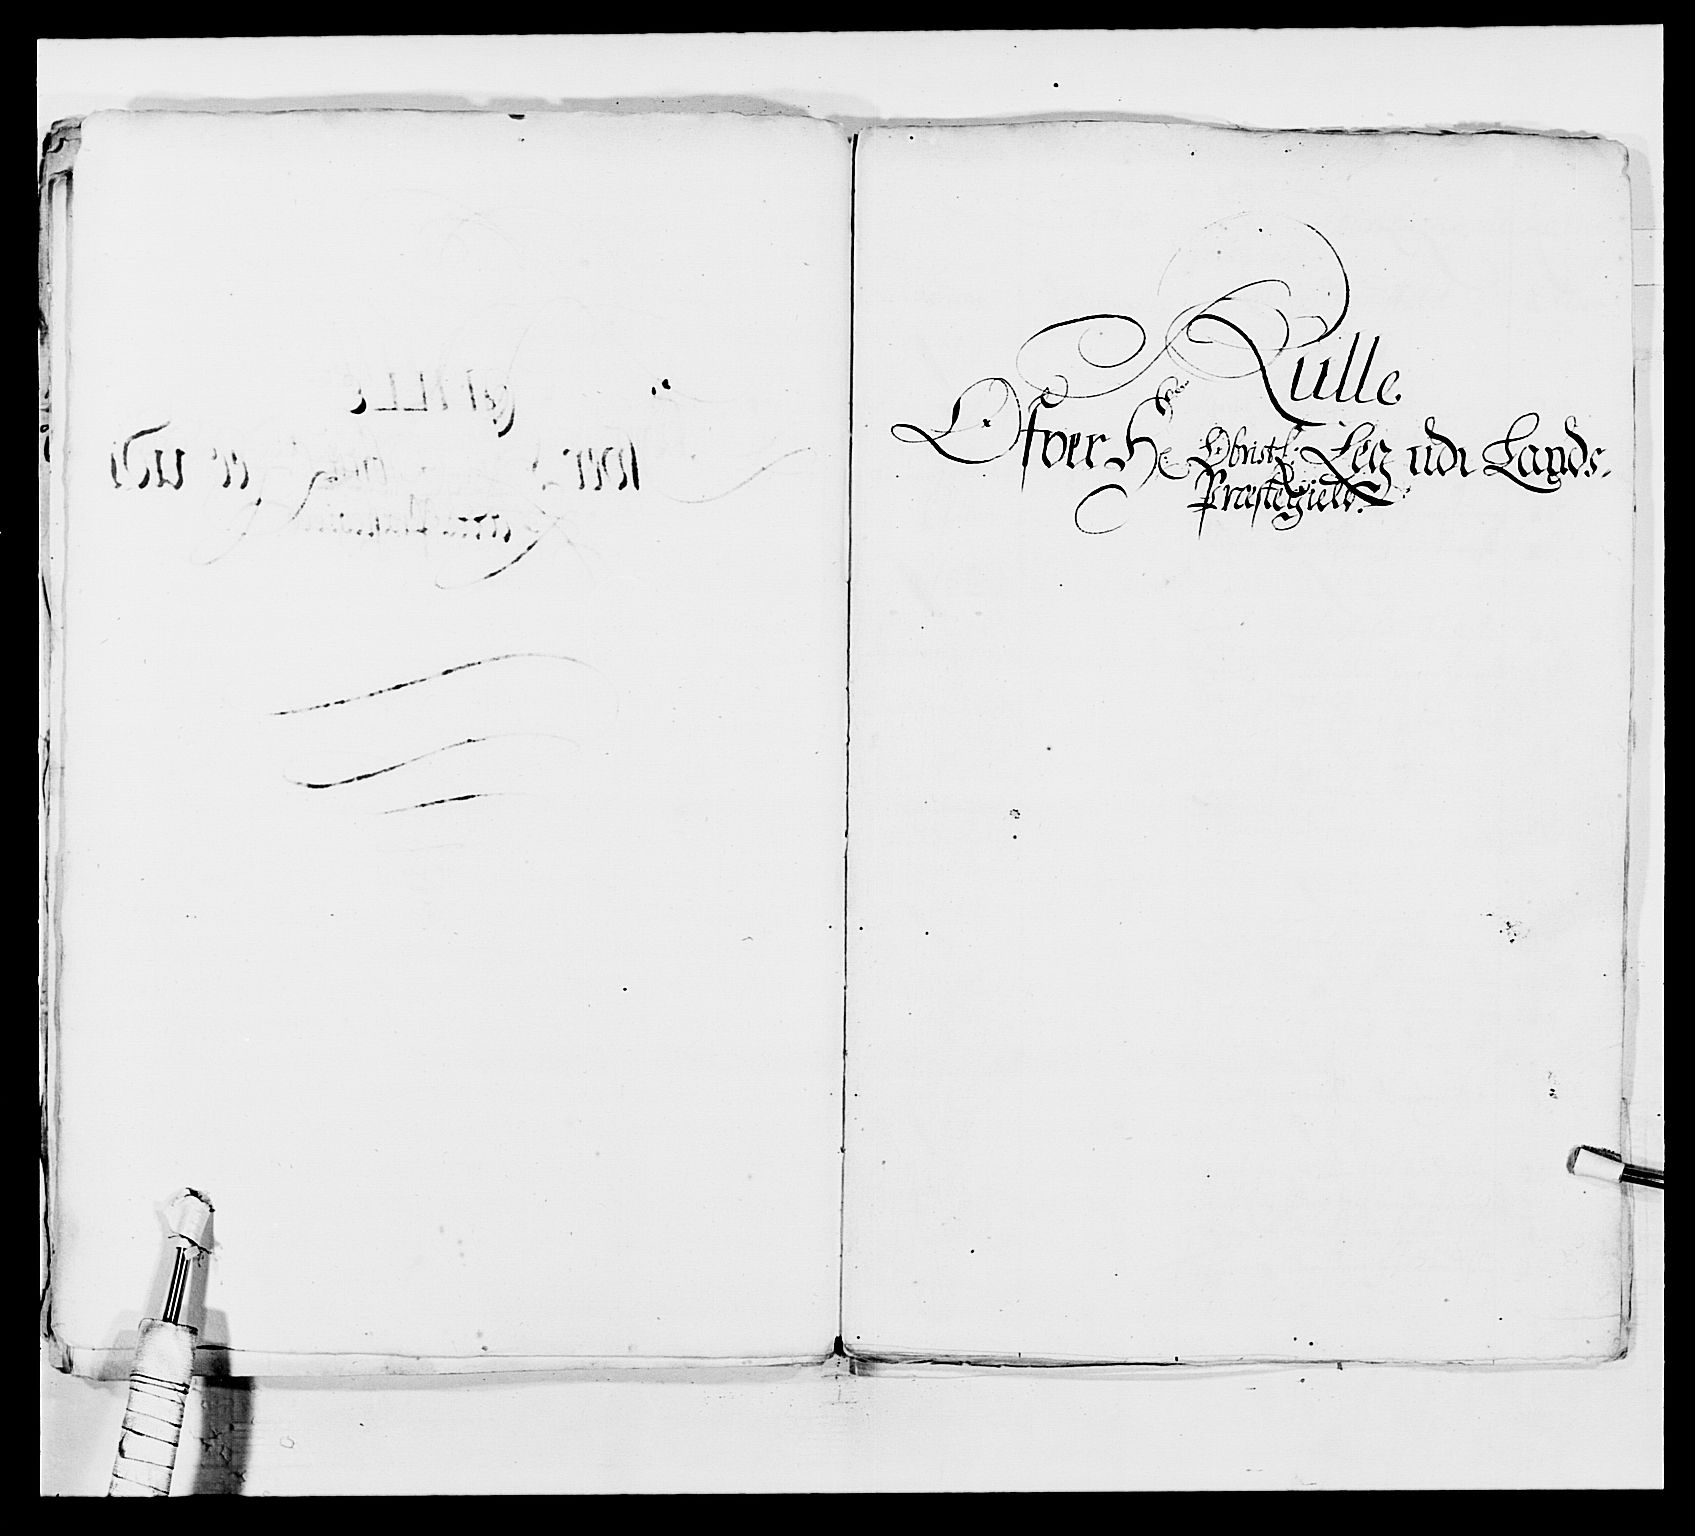 Rulle
Ofver H: Obristl: Leg udi Lands-
Præstegield.